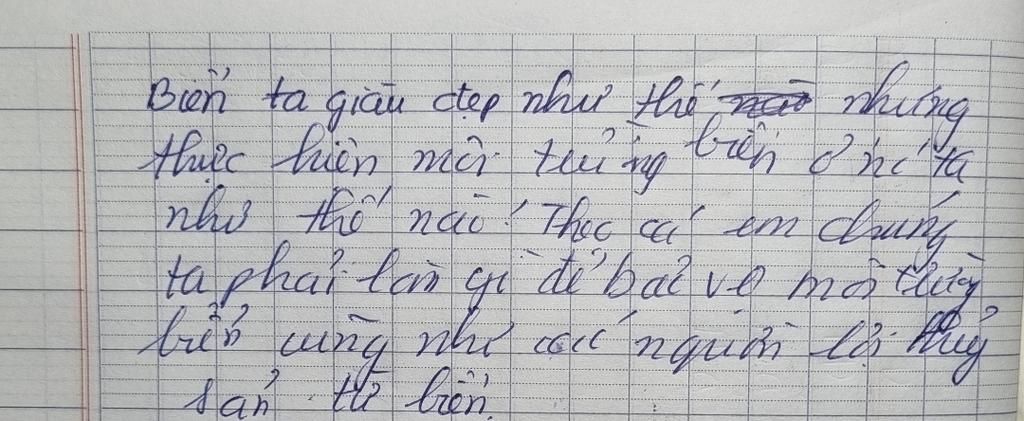 Biển ta giàu đẹp như thế nhưng
thực hiện môi trường biển ở nc ta
như thế nào? Theo các em chúng
ta phải làm gì để bảo vệ môi trường
biển cũng như các nguồn lợi thủy
sản từ biển.